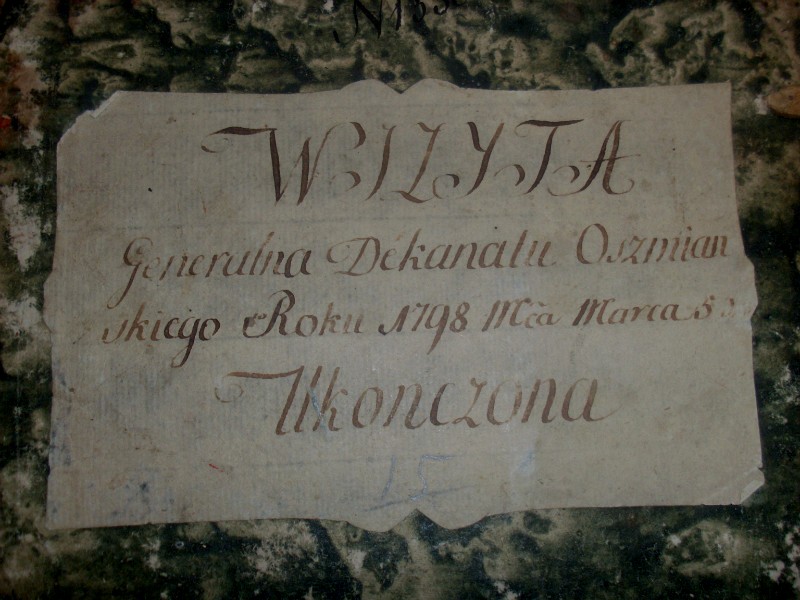 WIZYTA
Generalna Dekanatu Oszmian
skiego Roku 1798 Mca Marca 5
Ukonczona